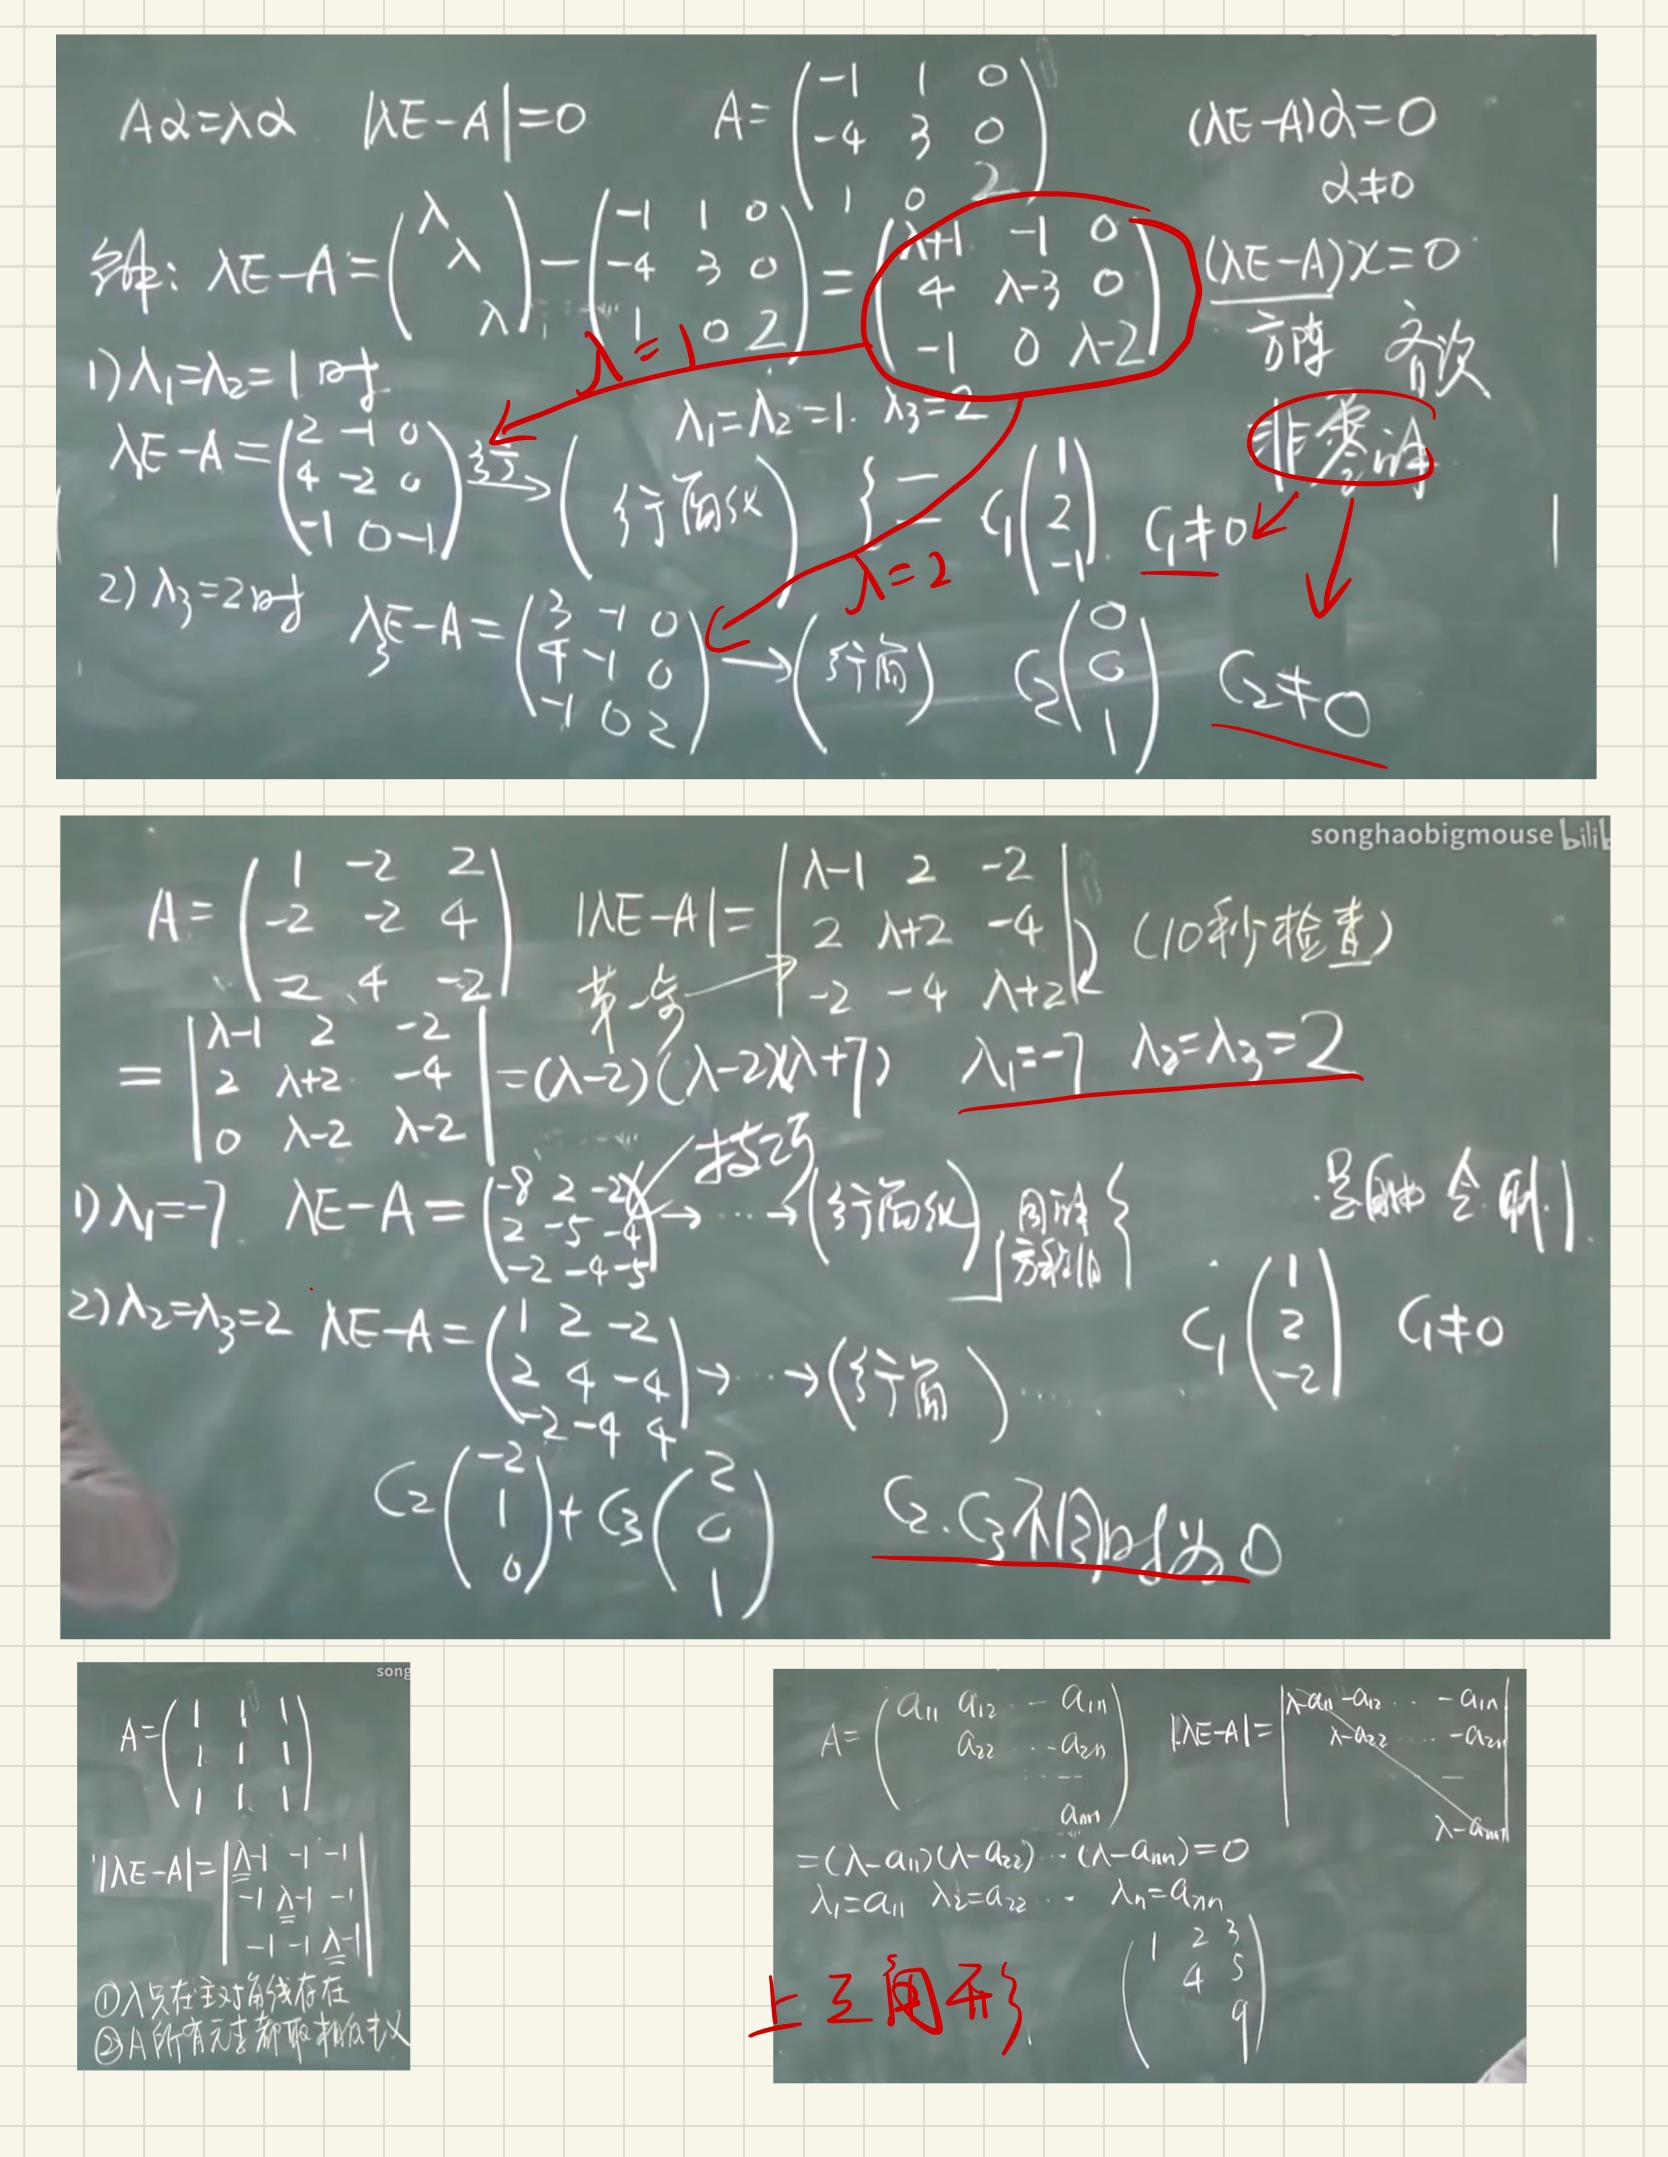 Aα=λα |λE-A|=0 A= (λE-A)α=0
-1 1 0
-4 3 0
1 0 2
α≠0
解: λE-A= - = (λE-A)x=0
λ
λ
λ
-1 1 0
-4 3 0
1 0 2
λ+1 -1 0
4 λ-3 0
-1 0 λ-2
方阵 齐次
非零解
λ=1
1) λ₁=λ₂=1时
λ₁=λ₂=1. λ₃=2
λE-A=
2 -1 0
4 -2 0
-1 0 -1
初等行
→
(行简约)
{
C₁
1
2
-1
C₁≠0
λ=2
2) λ₃=2时 λ₃E-A=
3 -1 0
4 -1 0
-1 0 2
→ (行简)
C₂
0
0
1
C₂≠0
songhaobigmouse bilib
A=
1 -2 2
-2 -2 4
2 4 -2
|λE-A|=
λ-1 2 -2
2 λ+2 -4
-2 -4 λ+2
(10秒检查)
第一步
=
λ-1 2 -2
2 λ+2 -4
0 λ-2 λ-2
=(λ-2)(λ-2)(λ+7) λ₁=-7 λ₂=λ₃=2
技巧
1) λ₁=-7 λE-A=
-8 2 -2
2 -5 -4
-2 -4 -5
→ ... → (行简约) 同解方程组 {
C₁
1
2
-2
C₁≠0
2) λ₂=λ₃=2 λE-A=
1 2 -2
2 4 -4
-2 -4 4
→ ... → (行简) ....
C₂
-2
1
0
+C₃
2
0
1
C₂.C₃不同时为0
song
A=
1 1 1
1 1 1
1 1 1
|λE-A|=
λ-1 -1 -1
-1 λ-1 -1
-1 -1 λ-1
①λ只在主对角线存在
②A所有元素都取相反
A=
a₁₁ a₁₂ ... a₁ₙ
a₂₂ ... a₂ₙ
...
aₙₙ
|λE-A|=
λ-a₁₁ -a₁₂ ... -a₁ₙ
λ-a₂₂ ... -a₂ₙ
λ-aₙₙ
=(λ-a₁₁)(λ-a₂₂)...(λ-aₙₙ)=0
λ₁=a₁₁ λ₂=a₂₂ ... λₙ=aₙₙ
上三角形
1 2 3
4 5
9